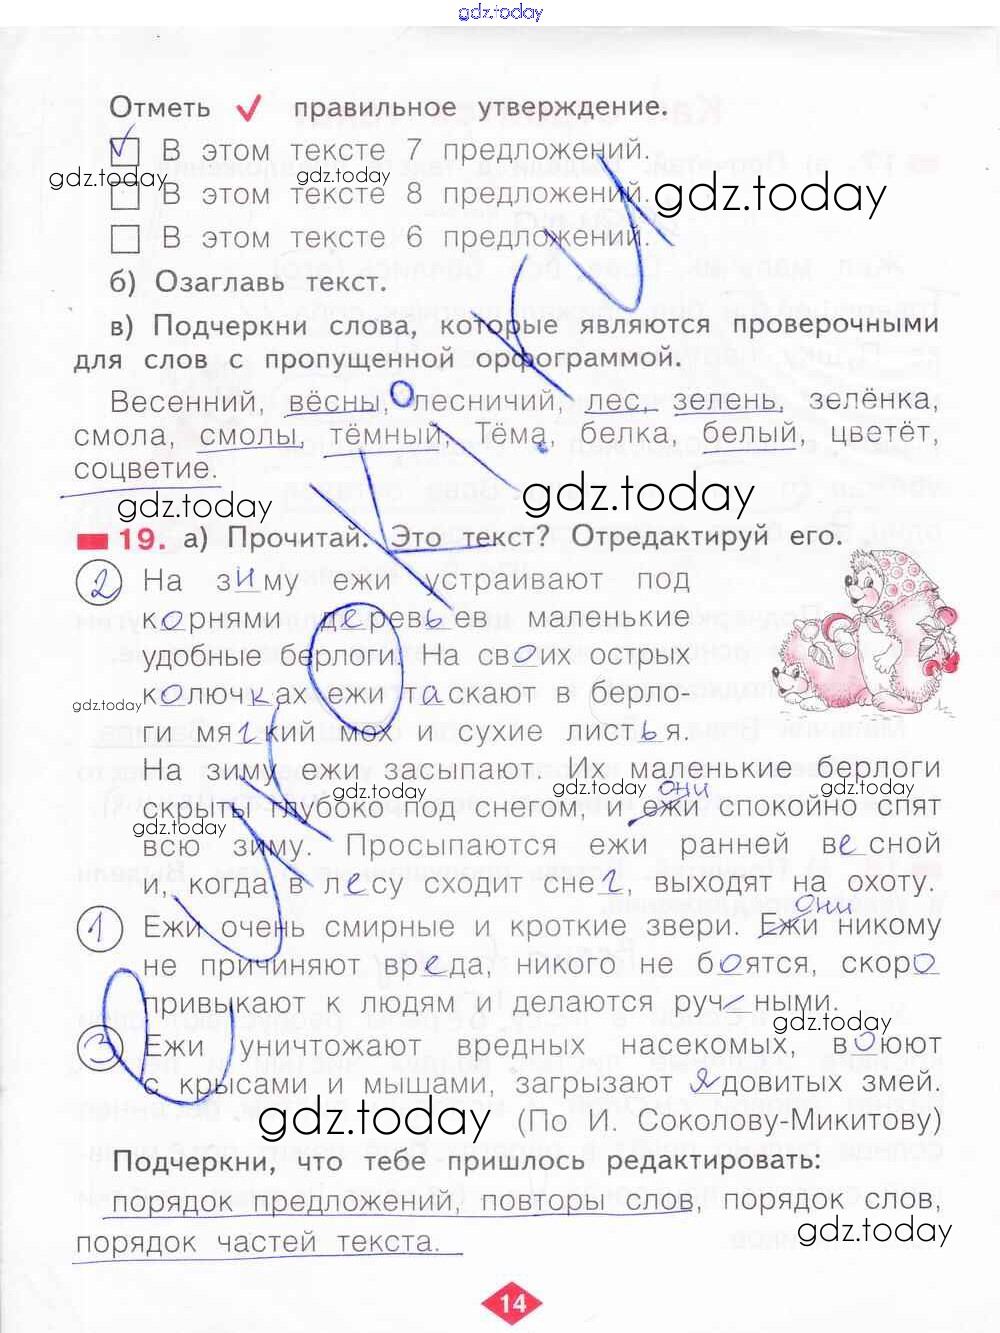 gdz.today
Отметь ✓ правильное утверждение.
✓ В этом тексте 7 предложений.
gdz.today gdz.today gdz.today
В этом тексте 8 предложений.
В этом тексте 6 предложений.
б) Озаглавь текст.
в) Подчеркни слова, которые являются проверочными
для слов с пропущенной орфограммой.
Весенний, вёсны, лесничий, лес, зелень, зелёнка,
смола, смолы, тёмный, Тёма, белка, белый, цветёт,
соцветие.
gdz.today gdz.today
19. а) Прочитай. Это текст? Отредактируй его.
2 На зиму ежи устраивают под
корнями деревьев маленькие
удобные берлоги. На своих острых
колючках ежи таскают в берло-
gdz.today gdz.today
ги мягкий мох и сухие листья.
На зиму ежи засыпают. Их маленькие берлоги
gdz.today gdz.today gdz.today gdz.today
они
скрыты глубоко под снегом, и ежи спокойно спят
gdz.today
всю зиму. Просыпаются ежи ранней весной
и, когда в лесу сходит снег, выходят на охоту.
Они
1 Ежи очень смирные и кроткие звери. Ежи никому
не причиняют вреда, никого не боятся, скоро
привыкают к людям и делаются ручными.
gdz.today
3 Ежи уничтожают вредных насекомых, воюют
с крысами и мышами, загрызают ядовитых змей.
gdz.today
(По И. Соколову-Микитову)
Подчеркни, что тебе пришлось редактировать:
порядок предложений, повторы слов, порядок слов,
gdz.today
порядок частей текста.
14